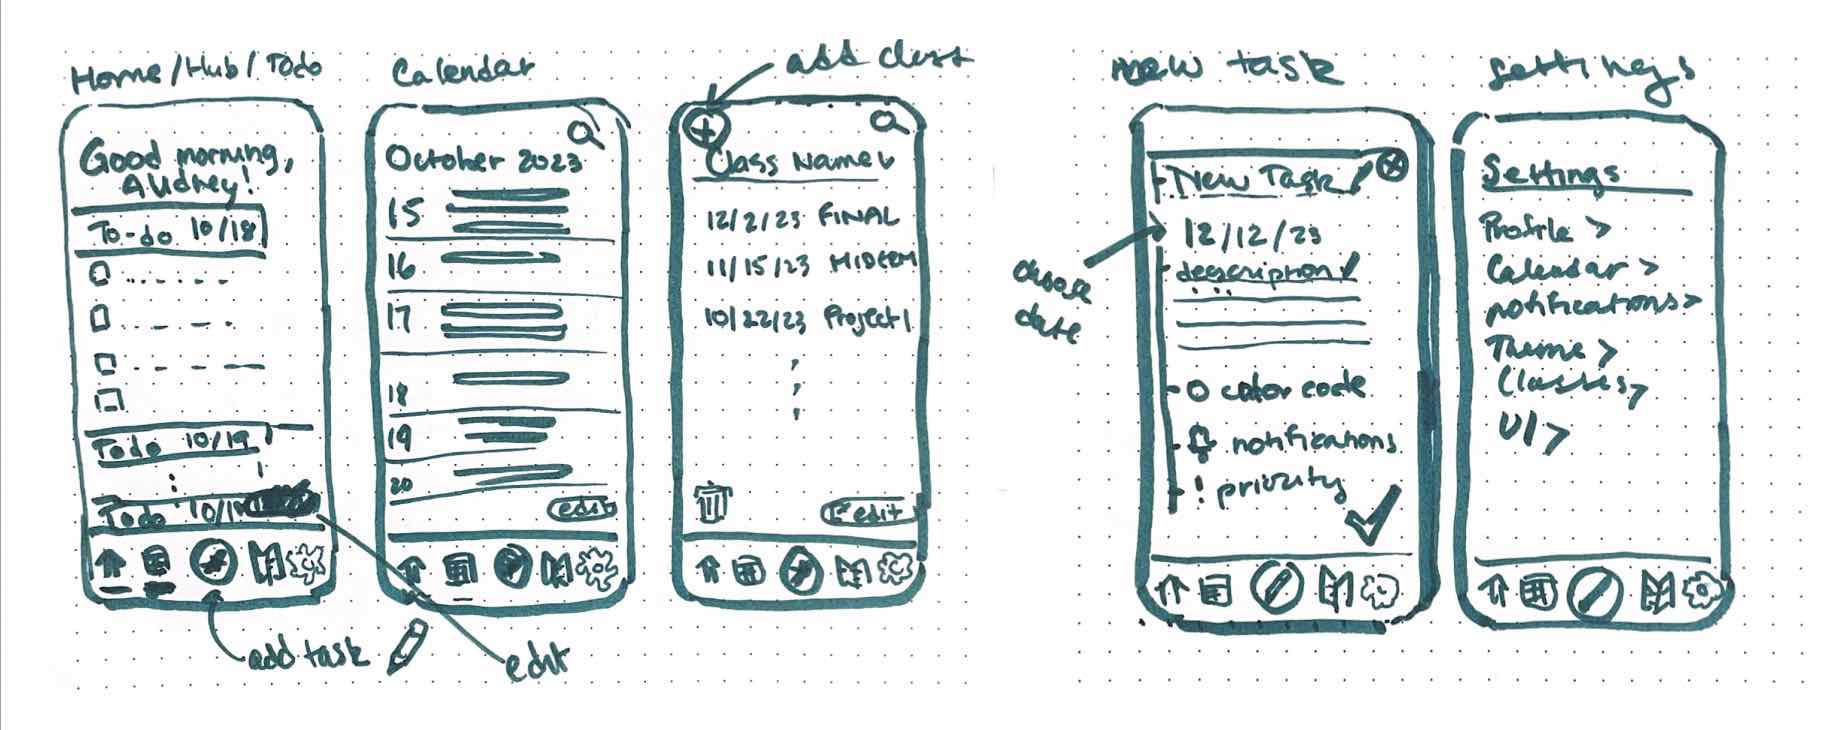 Home/Hub/Todo
Good morning,
Audrey!
To-do 10/18
Todo 10/19
Todo 10/1
add task
edit
Calendar
October 2023
15
16
17
18
19
20
edit
add class
Class Name
12/2/23 FINAL
11/15/23 MIDERM
10/22/23 Project 1
edit
new task
New Task
12/12/23
description
color code
notifications
! priority
choose
date
settings
Settings
Profile >
Calendar >
notifications >
Theme >
Classes >
UI >